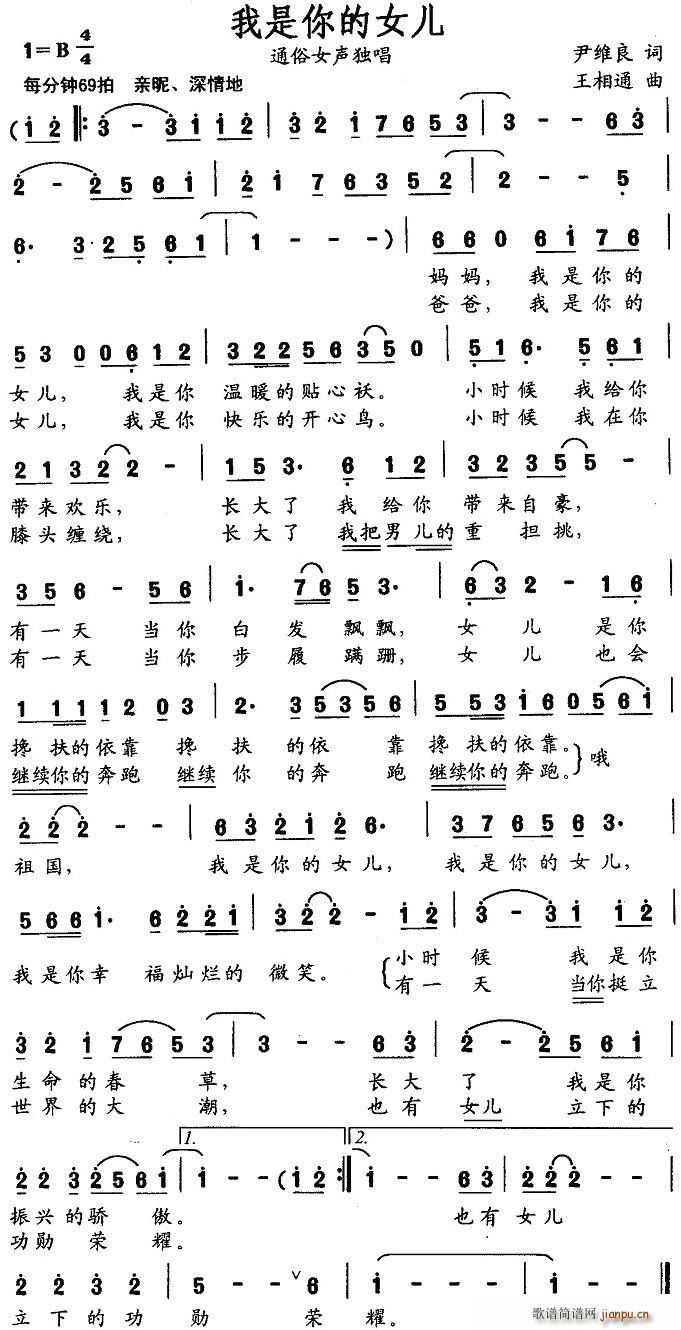 我是你的女儿
1=B 4/4
通俗女声独唱
尹维良 词
每分钟69拍 亲昵、深情地
王相通 曲
(i 2 ‖: 3 - 3 i i i 2 | 3 2 i 7 6 5 3 | 3 - - 6 3 |
2 - 2 5 6 i | 2 i 7 6 3 5 2 | 2 - - 5 |
6· 3· 2 5 6 1 | 1 - - - ) | 6 6 0 6 i 7 6 |
妈妈, 我是你的
爸爸, 我是你的
5 3 0 0 6 1 2 | 3 2 2 5 6 3 5 0 | 5 1 6· 5 6 1 |
女儿, 我是你 温暖的贴心袄。 小时候 我给你
女儿, 我是你 快乐的开心鸟。 小时候 我在你
2 1 3 2 2 - | 1 5 3· 6 1 2 | 3 2 3 5 5 - |
带来欢乐, 长大了 我 给你 带来自豪,
膝头缠绕, 长大了 我把男儿的重 担挑,
3 5 6 - 5 6 | i· 7 6 5 3· | 6 3 2 - 1 6 |
有一天 当你 白 发 飘飘, 女 儿 是你
有一天 当你 步 履 蹒跚, 女 儿 也会
1 1 1 1 1 2 0 3 | 2· 3 5 3 5 6 | 5 5 3 i 6 0 5 6 i |
搀 扶的依靠 搀 扶 的依 靠 搀 扶的依靠。
哦
继续你的奔跑 继续 你 的奔 跑 继续你的奔跑。
2 2 2 - - | 6 3 2 i 2 6· | 3 7 6 5 6 3· |
祖国, 我是你的女儿, 我是你的女儿,
5 6 6 i· 6 2 2 i | 3 2 2 - i 2 | 3 - 3 i i 2 |
我是你幸 福灿烂的 微笑。 小时 候 我是你
有一 天 当你挺立
3 2 i 7 6 5 3 | 3 - - 6 3 | 2 - 2 5 6 i |
生命的春 草, 长大 了 我是你
世界的大 潮, 也有 女儿 立下的
1. 2.
2 2 3 2 5 6 i | i - - (i 2 :‖ i - - 6 3 | 2 2 2 - - |
振兴的骄 傲。 也有女儿
功勋 荣 耀。
2 2 3 2 | 5 - - ∨ 6 | i - - - | i - - - ‖
立下的功 勋 荣 耀。
歌谱简谱网
jianpu.cn